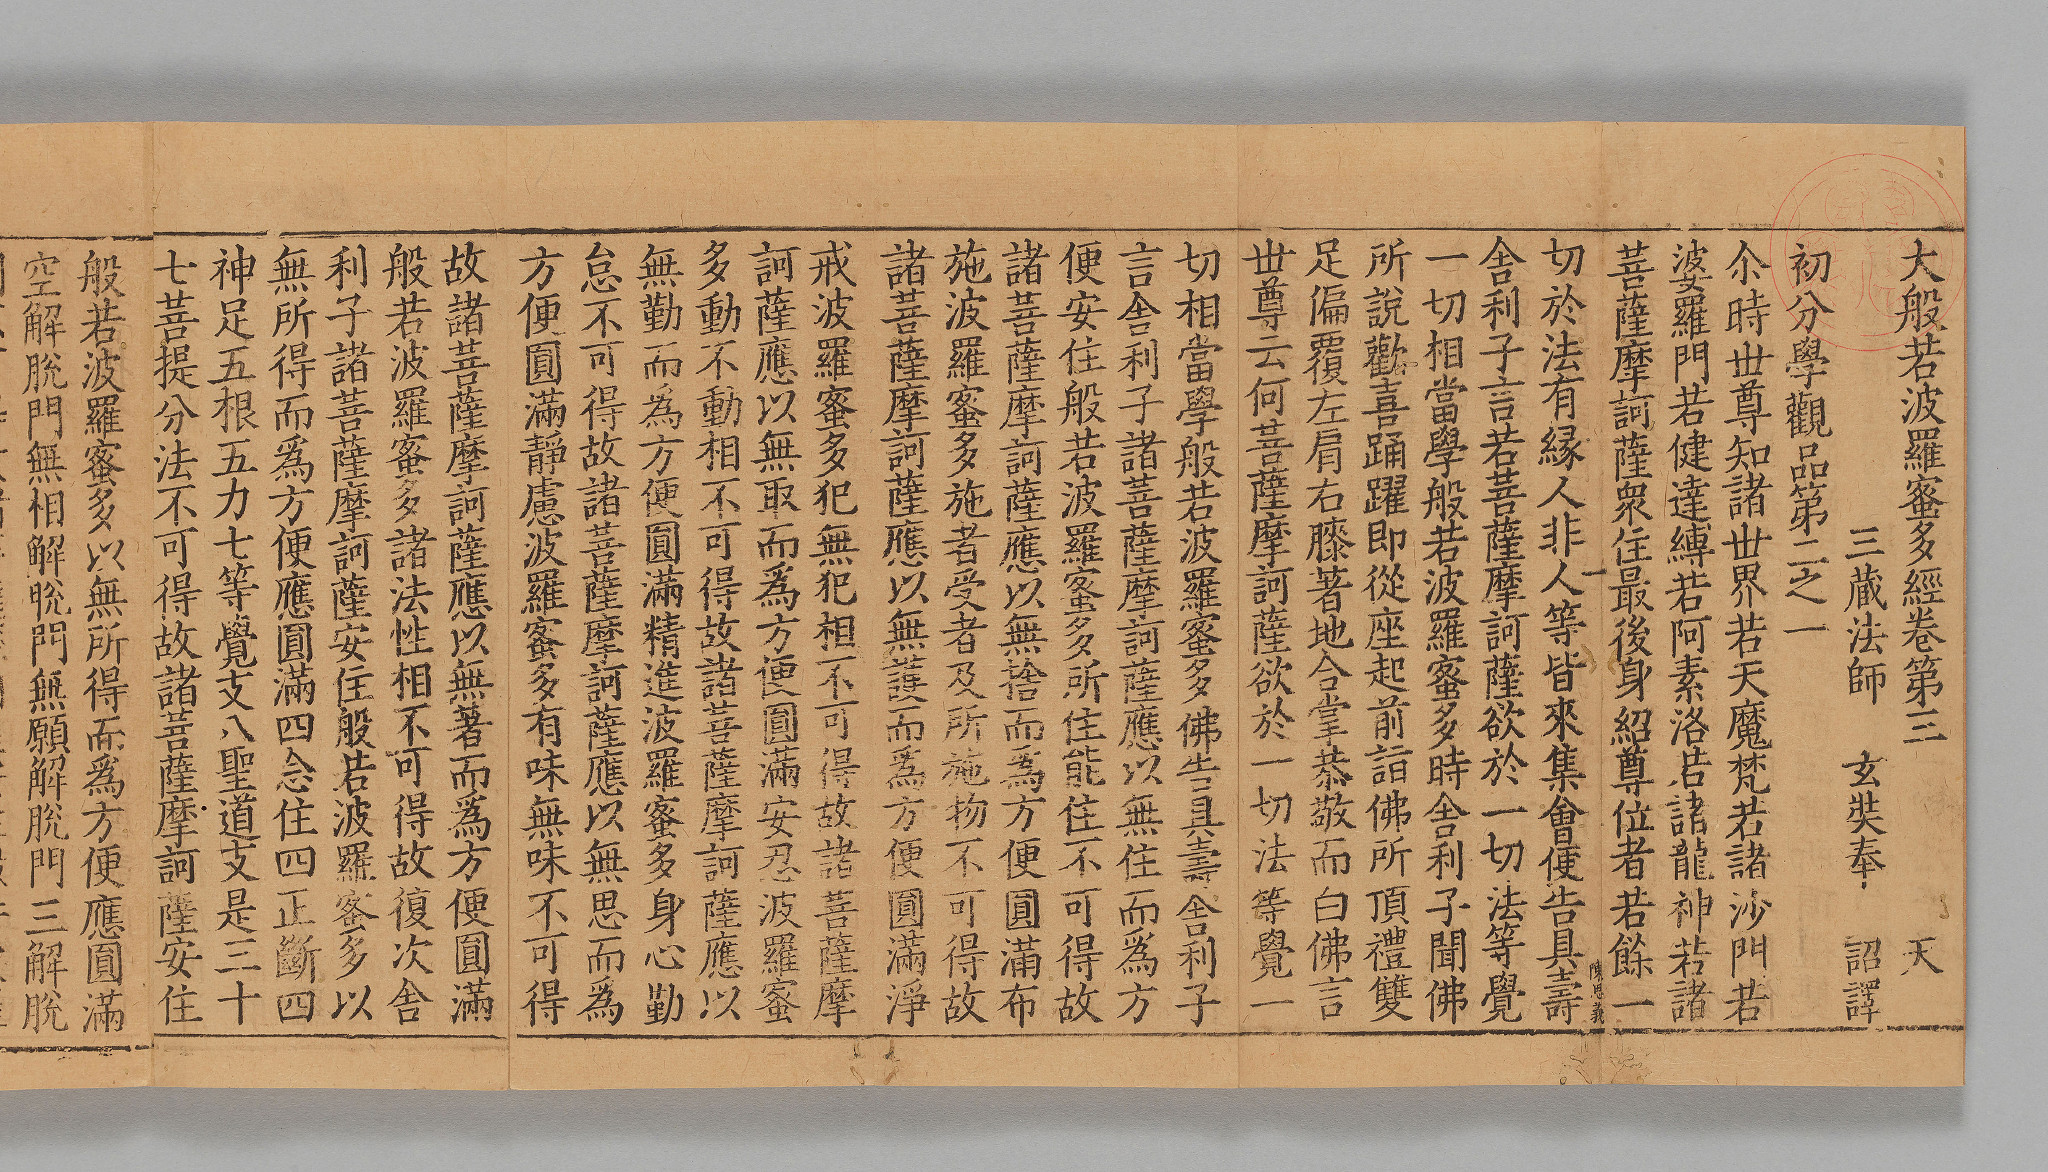 大般若波羅蜜多經卷第三　天
三藏法師　玄奘奉　詔譯
初分學觀品第二之一
尒時世尊知諸世界若天魔梵若諸沙門若
婆羅門若健達縛若阿素洛若諸龍神若諸
菩薩摩訶薩衆住最後身紹尊位者若餘一
陳思義
切於法有緣人非人等皆來集會便告具壽
舍利子言若菩薩摩訶薩欲於一切法等覺
一切相當學般若波羅蜜多時舍利子聞佛
所說歡喜踊躍即從座起前詣佛所頂禮雙
足偏覆左肩右膝著地合掌恭敬而白佛言
世尊云何菩薩摩訶薩欲於一切法等覺一
切相當學般若波羅蜜多佛告具壽舍利子
言舍利子諸菩薩摩訶薩應以無住而爲方
便安住般若波羅蜜多所住能住不可得故
諸菩薩摩訶薩應以無捨而爲方便圓滿布
施波羅蜜多施者受者及所施物不可得故
諸菩薩摩訶薩應以無護而爲方便圓滿淨
戒波羅蜜多犯無犯相不可得故諸菩薩摩
訶薩應以無取而爲方便圓滿安忍波羅蜜
多動不動相不可得故諸菩薩摩訶薩應以
無勤而爲方便圓滿精進波羅蜜多身心勤
怠不可得故諸菩薩摩訶薩應以無思而爲
方便圓滿靜慮波羅蜜多有味無味不可得
故諸菩薩摩訶薩應以無著而爲方便圓滿
般若波羅蜜多諸法性相不可得故復次舍
利子諸菩薩摩訶薩安住般若波羅蜜多以
無所得而爲方便應圓滿四念住四正斷四
神足五根五力七等覺支八聖道支是三十
七菩提分法不可得故諸菩薩摩訶薩安住
般若波羅蜜多以無所得而爲方便應圓滿
空解脫門無相解脫門無願解脫門三解脫